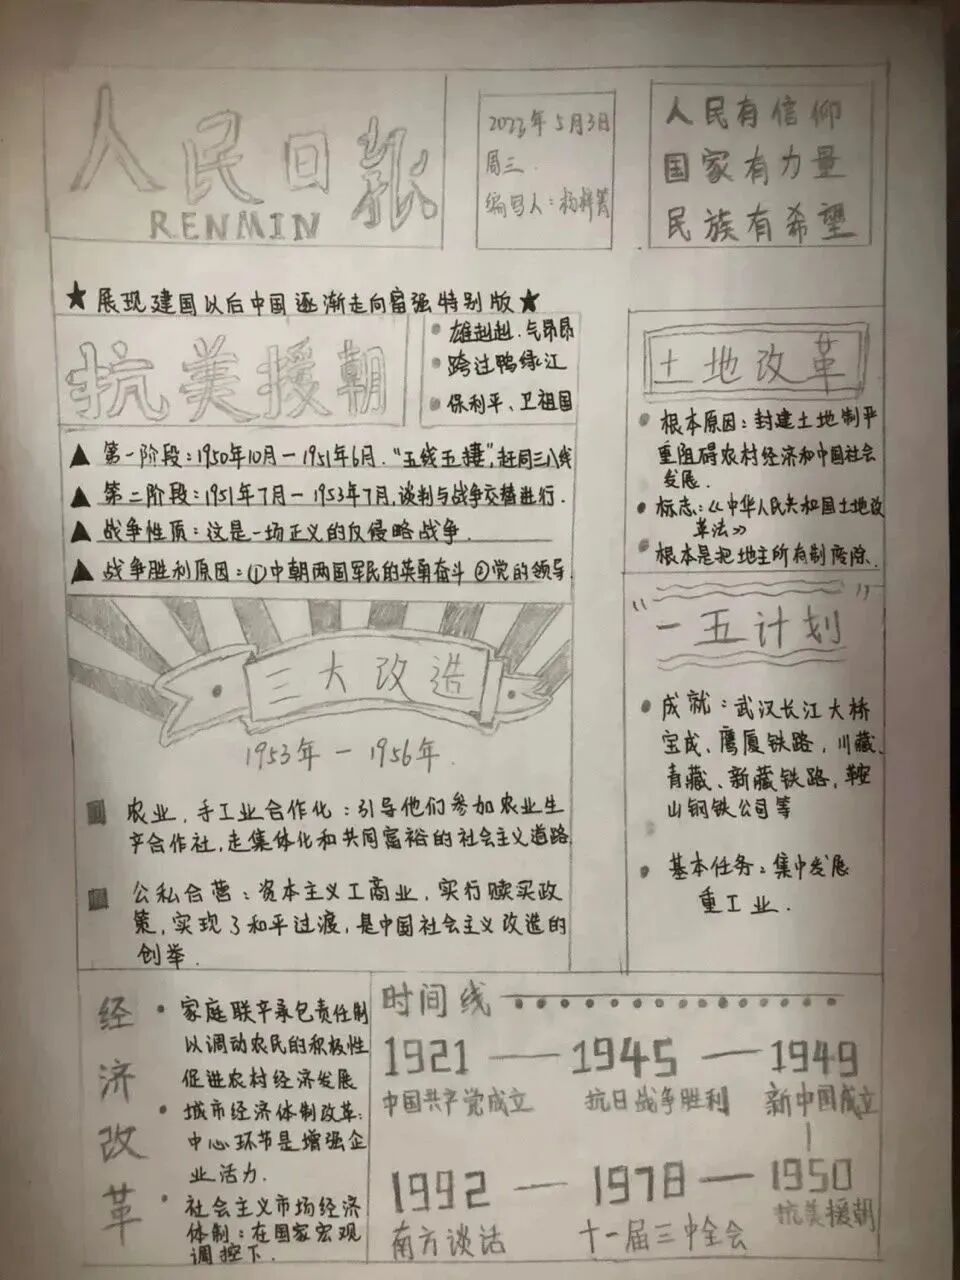 人民日报
RENMIN
2023年5月3日
周三.
编写人:杨梓箐
人民有信仰
国家有力量
民族有希望
★展现建国以后中国逐渐走向富强特别版★
抗美援朝
雄赳赳.气昂昂
跨过鸭绿江
保利平、卫祖国
▲第一阶段:1950年10月—1951年6月.“五线五捿”,赶同三八线
▲第二阶段:1951年7月—1953年7月,谈判与战争交替进行.
▲战争性质:这是一场正义的反侵略战争.
▲战争胜利原因:①中朝两国军民的英勇奋斗 ②党的领导
三大改造
1953年—1956年.
农业,手工业合作化:引导他们参加农业生
产合作社,走集体化和共同富裕的社会主义道路
公私合营:资本主义工商业,实行赎买政
策,实现了和平过渡,是中国社会主义改造的
创举.
土地改革
根本原因:封建土地制严
重阻碍农村经济和中国社会
发展.
标志:《中华人民共和国土地改
革法》
根本是把地主所有制废除.
“一五计划”
成就:武汉长江大桥
宝成、鹰厦铁路,川藏、
青藏、新藏铁路,鞍
山钢铁公司等
基本任务:集中发展
重工业.
经济改革
家庭联产承包责任制
以调动农民的积极性
促进农村经济发展
城市经济体制改革:
中心环节是增强企
业活力.
社会主义市场经济
体制:在国家宏观
调控下.
时间线
1921—1945—1949
中国共产党成立 抗日战争胜利 新中国成立
1992—1978—1950
南方谈话 十一届三中全会 抗美援朝